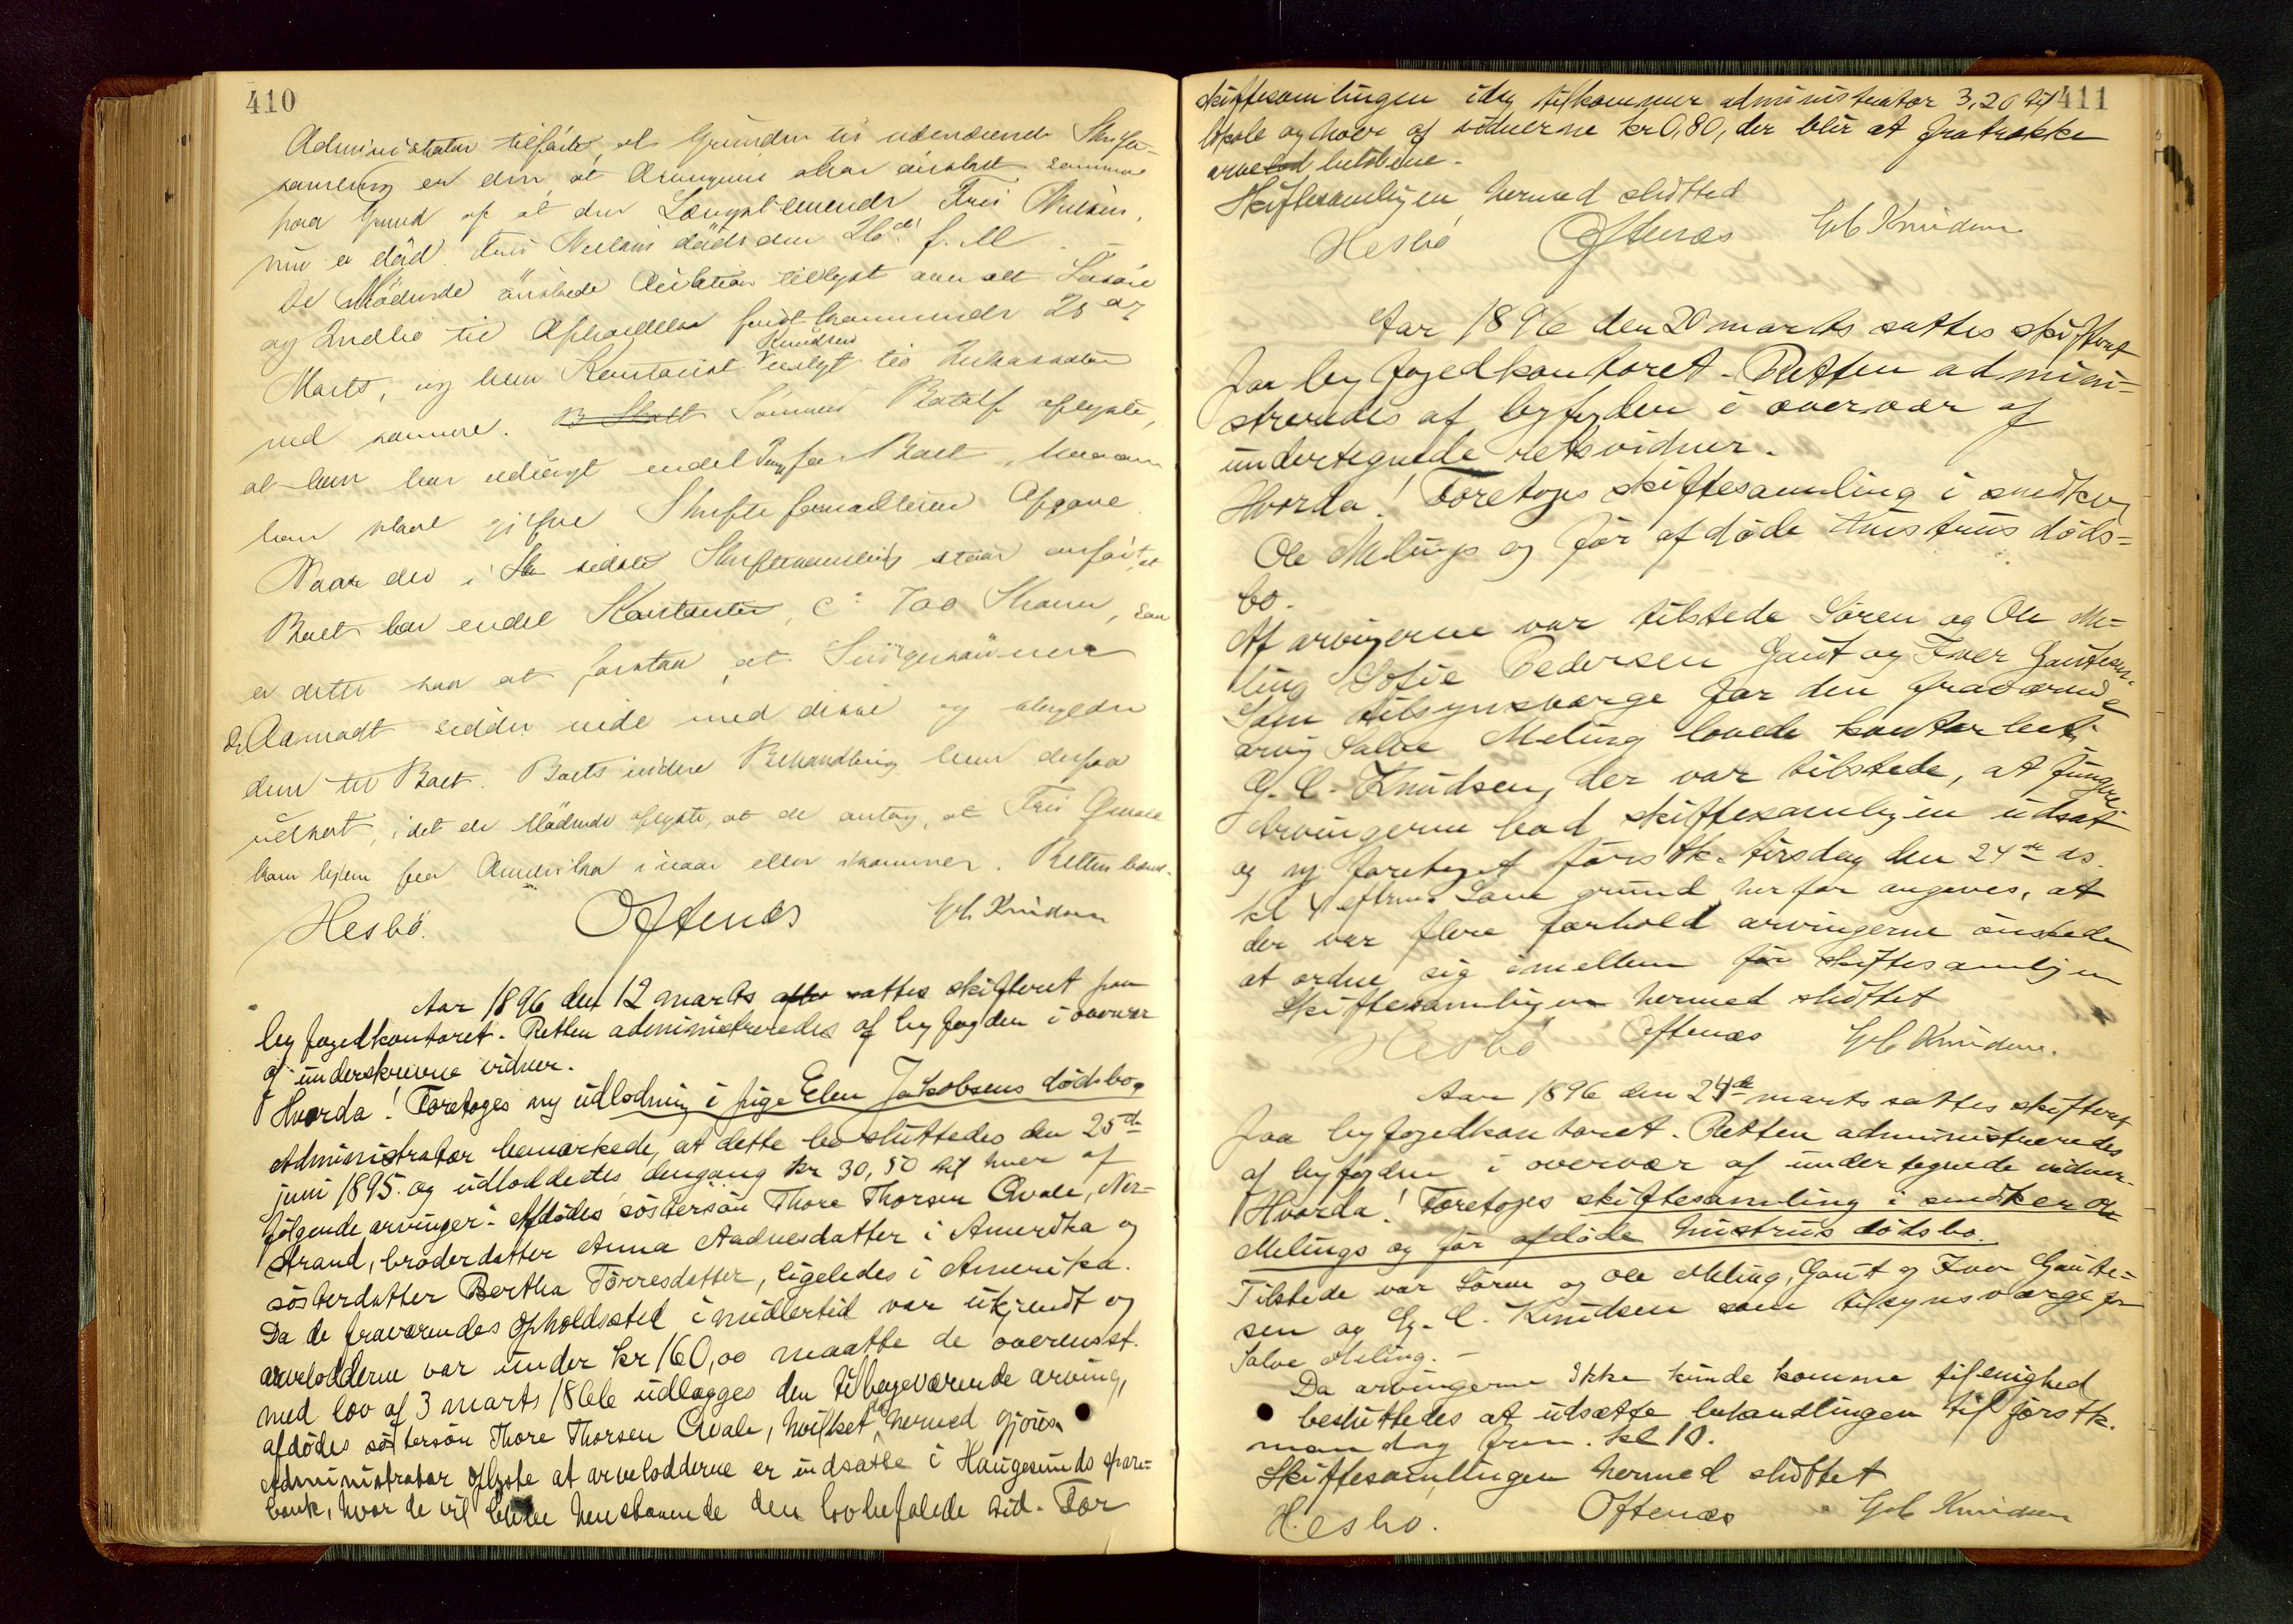 410
Administrator tilførte, at Grunden til nærværende Skifte-
samling er den, at Arvingerne har ønsket samme
paa Grund af at den Længstlevende Fru Nielsen,
nu er død. Fru Nielsens døds den 26de f. M.
De Mødende ønskede Auktion tillyst over alt Løsøre
og Indbo til Afholdelse førstkommende 25de
Marts, og blev Kontorist Knudsen valgt til Inkassator
ved samme. Sønnen Rolalf oplyste,
at han har udlagt endel Penge for Boet, hvorom
han skal gi Skifteforvalteren Opgave.
Naar der i sidste Skiftesamling staar anført, at
Boet har endel Kontanter, ca 700 Kroner, saa
er dette saa at forstaa, at Svigersønnen
Aamodt sidder inde med disse og skylder
dem til Boet. Boets videre Behandling blev derpaa
udsat, idet de Mødende oplyste, at de antog, at Fru Qvale
kom hjem fra Amerika i vaar eller sommer. Retten hævet.
Hesbø. Oftenæs G. C. Knudsen
Aar 1896 den 12 marts sattes skifteret paa
byfogedkontoret. Retten administreredes af byfogden i overvær
af underskrevne vidner.
Hvorda! Foretoges ny udlodning i pige Elen Jakobsens dødsbo.
Administrator bemærkede, at dette bo sluttedes den 25de
juni 1895. og udloddedes dengang kr 30,50 til hver af
følgende arvinger: afdødes søstersøn Thore Thorsen Qvale, Ner-
strand, broderdatter Anna Aadnesdatter i Amerika og
søsterdatter Bertha Torresdatter, ligeledes i Amerika.
Da de fraværendes opholdssted imidlertid var ukjendt og
arvelodderne var under kr 160,00 maatte de overensst.
med lov af 3 marts 1866 udlægges den tilbageværende arving,
afdødes søstersøn Thore Thorsen Qvale, hvilket hermed gjøres
Administrator oplyste at arvelodderne er indsatte i Haugesunds spare-
bank, hvor de vil blive henstaaende den lovbefalede tid. For
411
skiftesamlingen idag tilkommer administrator 3,20 til
Skole og hver af vidnerne kr 0,80, der blir at fratrække
arvebeløbene.
Skiftesamlingen hermed sluttet
Hesbø Oftenæs G. C. Knudsen
Aar 1896 den 20 marts sattes skifteret
paa byfogedkontoret. Retten admini-
streredes af byfogden i overvær af
undertegnede retsvidner.
Hvorda! Foretoges skiftesamling i snedker
Ole Melings og før afdøde hustrus døds-
bo.
Af arvingerne var tilstede Søren og Ole Me-
ling Sofie Pedersen Gaut og Iver Gautesen.
Som tilsynsværge for den fraværende
arving Salve Meling lovede kontorbetj.
G. C. Knudsen, der var tilstede, at fungere
Arvingerne bad skiftesamlingen udsat
og ny foretaget førstk. tirsdag den 24de ds.
kl 4 efterm. Som grund herfor angaves, at
der var flere forhold arvingerne ønskede
at ordne sig imellem før skiftesamlingen
Skiftesamlingen hermed sluttet
Hesbø Oftenæs G. C. Knudsen.
Aar 1896 den 24de marts sattes skifteret
paa byfogedkontoret. Retten administreredes
af byfogden i overvær af undertegnede vidner.
Hvorda! Foretoges skiftesamling i snedker Ole
Melings og før afdøde hustrus dødsbo.
Tilstede var Søren og Ole Meling, Gaut og Iver Gaute-
sen og G. C. Knudsen som tilsynsværge for
Salve Meling. -
Da arvingerne ikke kunde komme til enighed
besluttedes at udsætte behandlingen til førstk.
mandag frm. kl 10.
Skiftesamlingen hermed sluttet
Hesbø. Oftenæs G. C. Knudsen